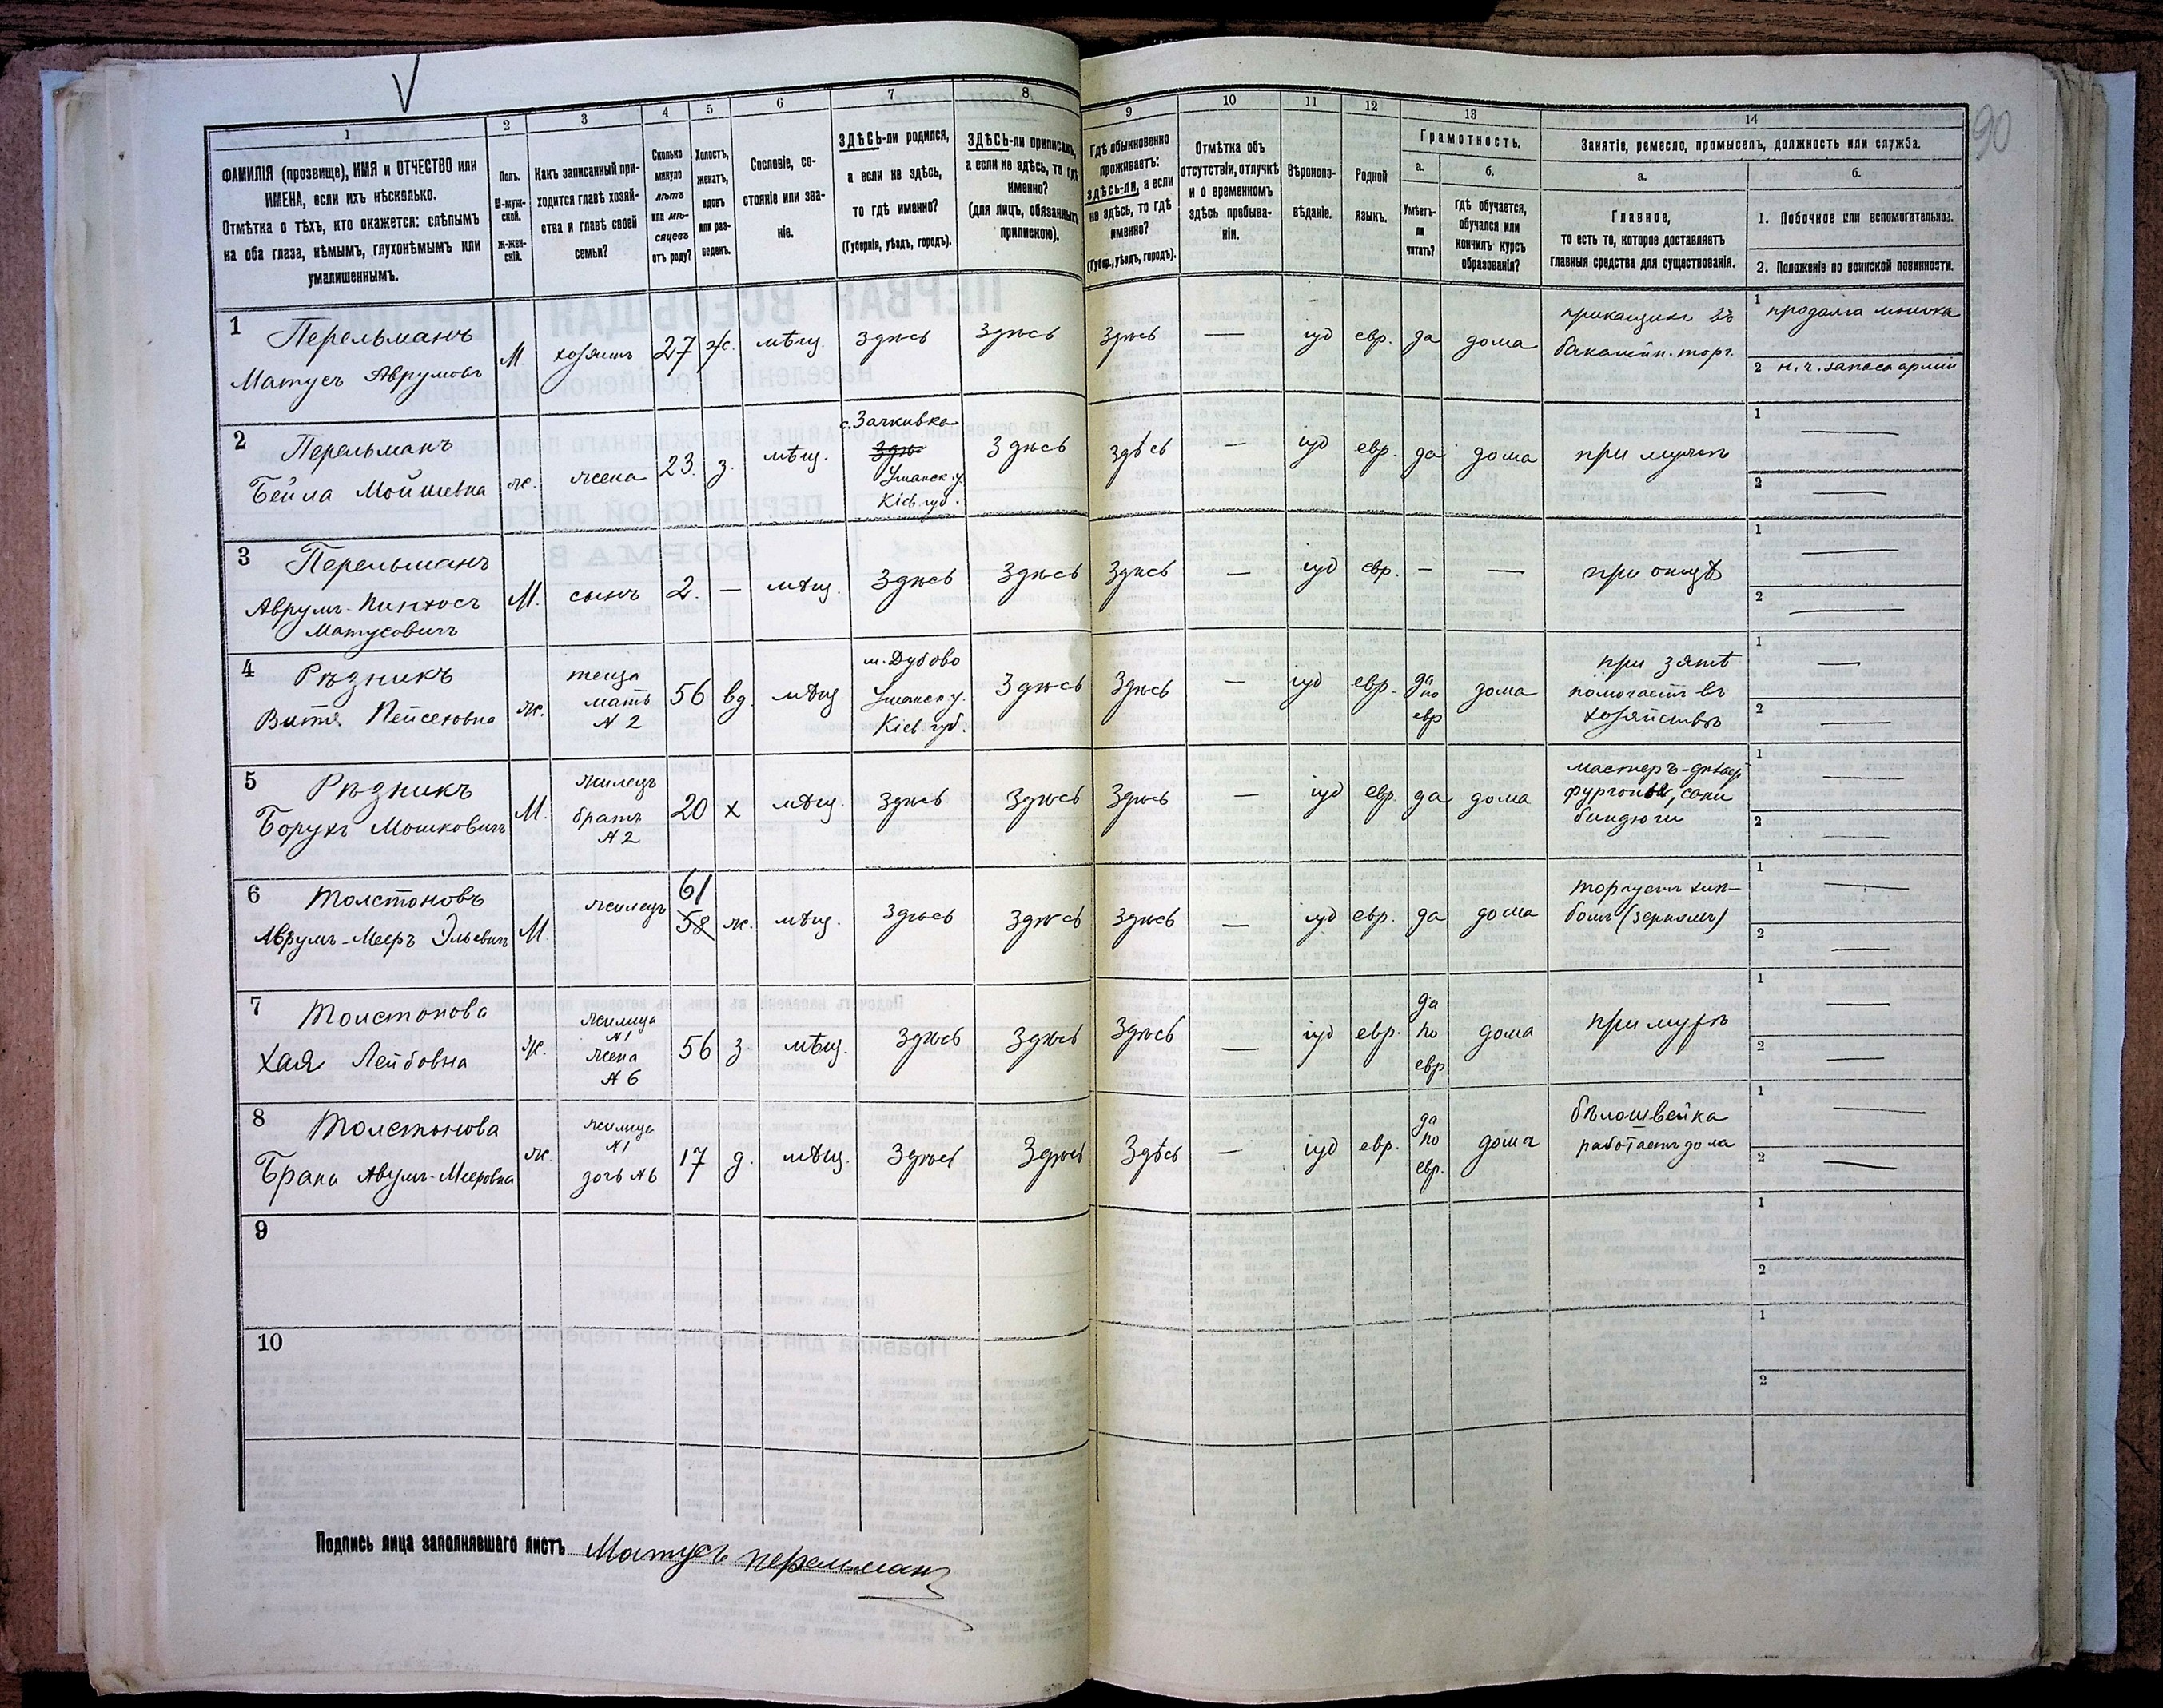 90
1
ФАМИЛІЯ (прозвище), ИМЯ и ОТЧЕСТВО или
ИМЕНА, если ихъ нѣсколько.
Отмѣтка о тѣхъ, кто окажется: слѣпымъ
на оба глаза, нѣмымъ, глухонѣмымъ или
умалишеннымъ.
2
Полъ.
М-муж-
ской.
Ж-жен-
скій.
3
Какъ записанный при-
ходится главѣ хозяй-
ства и главѣ своей
семьи?
4
Сколько
минуло
лѣтъ
или мѣ-
сяцевъ
отъ роду?
5
Холостъ,
женатъ,
вдовъ
или раз-
веденъ.
6
Сословіе, со-
стояніе или зва-
ніе.
7
ЗДѢСЬ-ли родился,
а если не здѣсь,
то гдѣ именно?
(Губернія, уѣздъ, городъ).
8
ЗДѢСЬ-ли приписанъ,
а если не здѣсь, то гдѣ
именно?
(для лицъ, обязанныхъ
припискою).
9
Гдѣ обыкновенно
проживаетъ:
здѣсь-ли, а если
не здѣсь, то гдѣ
именно?
(Губер., уѣздъ, городъ).
10
Отмѣтка объ
отсутствіи, отлучкѣ
и о временномъ
здѣсь пребыва-
ніи.
11
Вѣроиспо-
вѣданіе.
12
Родной
языкъ.
13
Грамотность.
а.
Умѣетъ-
ли
читать?
б.
Гдѣ обучается,
обучался или
кончилъ курсъ
образованія?
14
Занятіе, ремесло, промыселъ, должность или служба.
а.
Главное,
то есть то, которое доставляетъ
главныя средства для существованія.
б.
1. Побочное или вспомогательное.
2. Положеніе по воинской повинности.
1 Перельманъ
Матусъ Аврумовъ
М. хозяинъ 27 ж. мѣщ. здѣсь здѣсь
здѣсь — іуд евр. да дома
прикащикъ въ
бакалейн. торг.
1
2 н. ч. запаса арміи
2 Перельманъ
Бейла Мойшевна
ж. жена 23. з. мѣщ.
с. Зачкивка
Уманск. у.
Кіев. губ.
здѣсь здѣсь — іуд евр. да дома при мужѣ
1 —
2 —
3 Перельманъ
Аврумъ-Пинхосъ
Матусовичъ
М. сынъ 2. — мѣщ. здѣсь здѣсь здѣсь — іуд евр. — — при отцѣ
1 —
2 —
4 Рѣзникъ
Витя Пейсеховна
ж.
теща
мать
№ 2
56 вд. мѣщ
м. Дубово
Уманск у.
Кіев губ.
здѣсь здѣсь — іуд евр.
да
по
евр
дома
при зятѣ
помогаетъ въ
хозяйствѣ
1 —
2 —
5 Рѣзникъ
Борухъ Мошковичъ
М.
жилецъ
братъ
№ 2
20 х мѣщ. здѣсь здѣсь здѣсь — іуд евр. да дома
мастеръ-
фургоны, сани
биндюги
1 —
2 —
6 Толстоновъ
Аврумъ-Мееръ Эльевичъ
М. жилецъ
61
58
ж. мѣщ. здѣсь здѣсь здѣсь — іуд евр. да дома
торгуетъ хлѣ-
бомъ (зерномъ)
1 —
2 —
7 Толстонова
Хая Лейбовна
ж.
жилица
№ 1
жена
№ 6
56 з мѣщ. здѣсь здѣсь здѣсь — іуд евр.
да
по
евр
дома при мужѣ
1 —
2 —
8 Толстонова
Брана Аврумъ-Мееровна
ж.
жилица
№ 1
дочь №6
17 д. мѣщ. здѣсь здѣсь здѣсь — іуд евр.
да
по
евр.
дома
бѣлошвейка
работаетъ дома
1 —
2 —
9
1
2
10
1
2
Подпись лица заполнявшаго листъ Матусъ Перельманъ